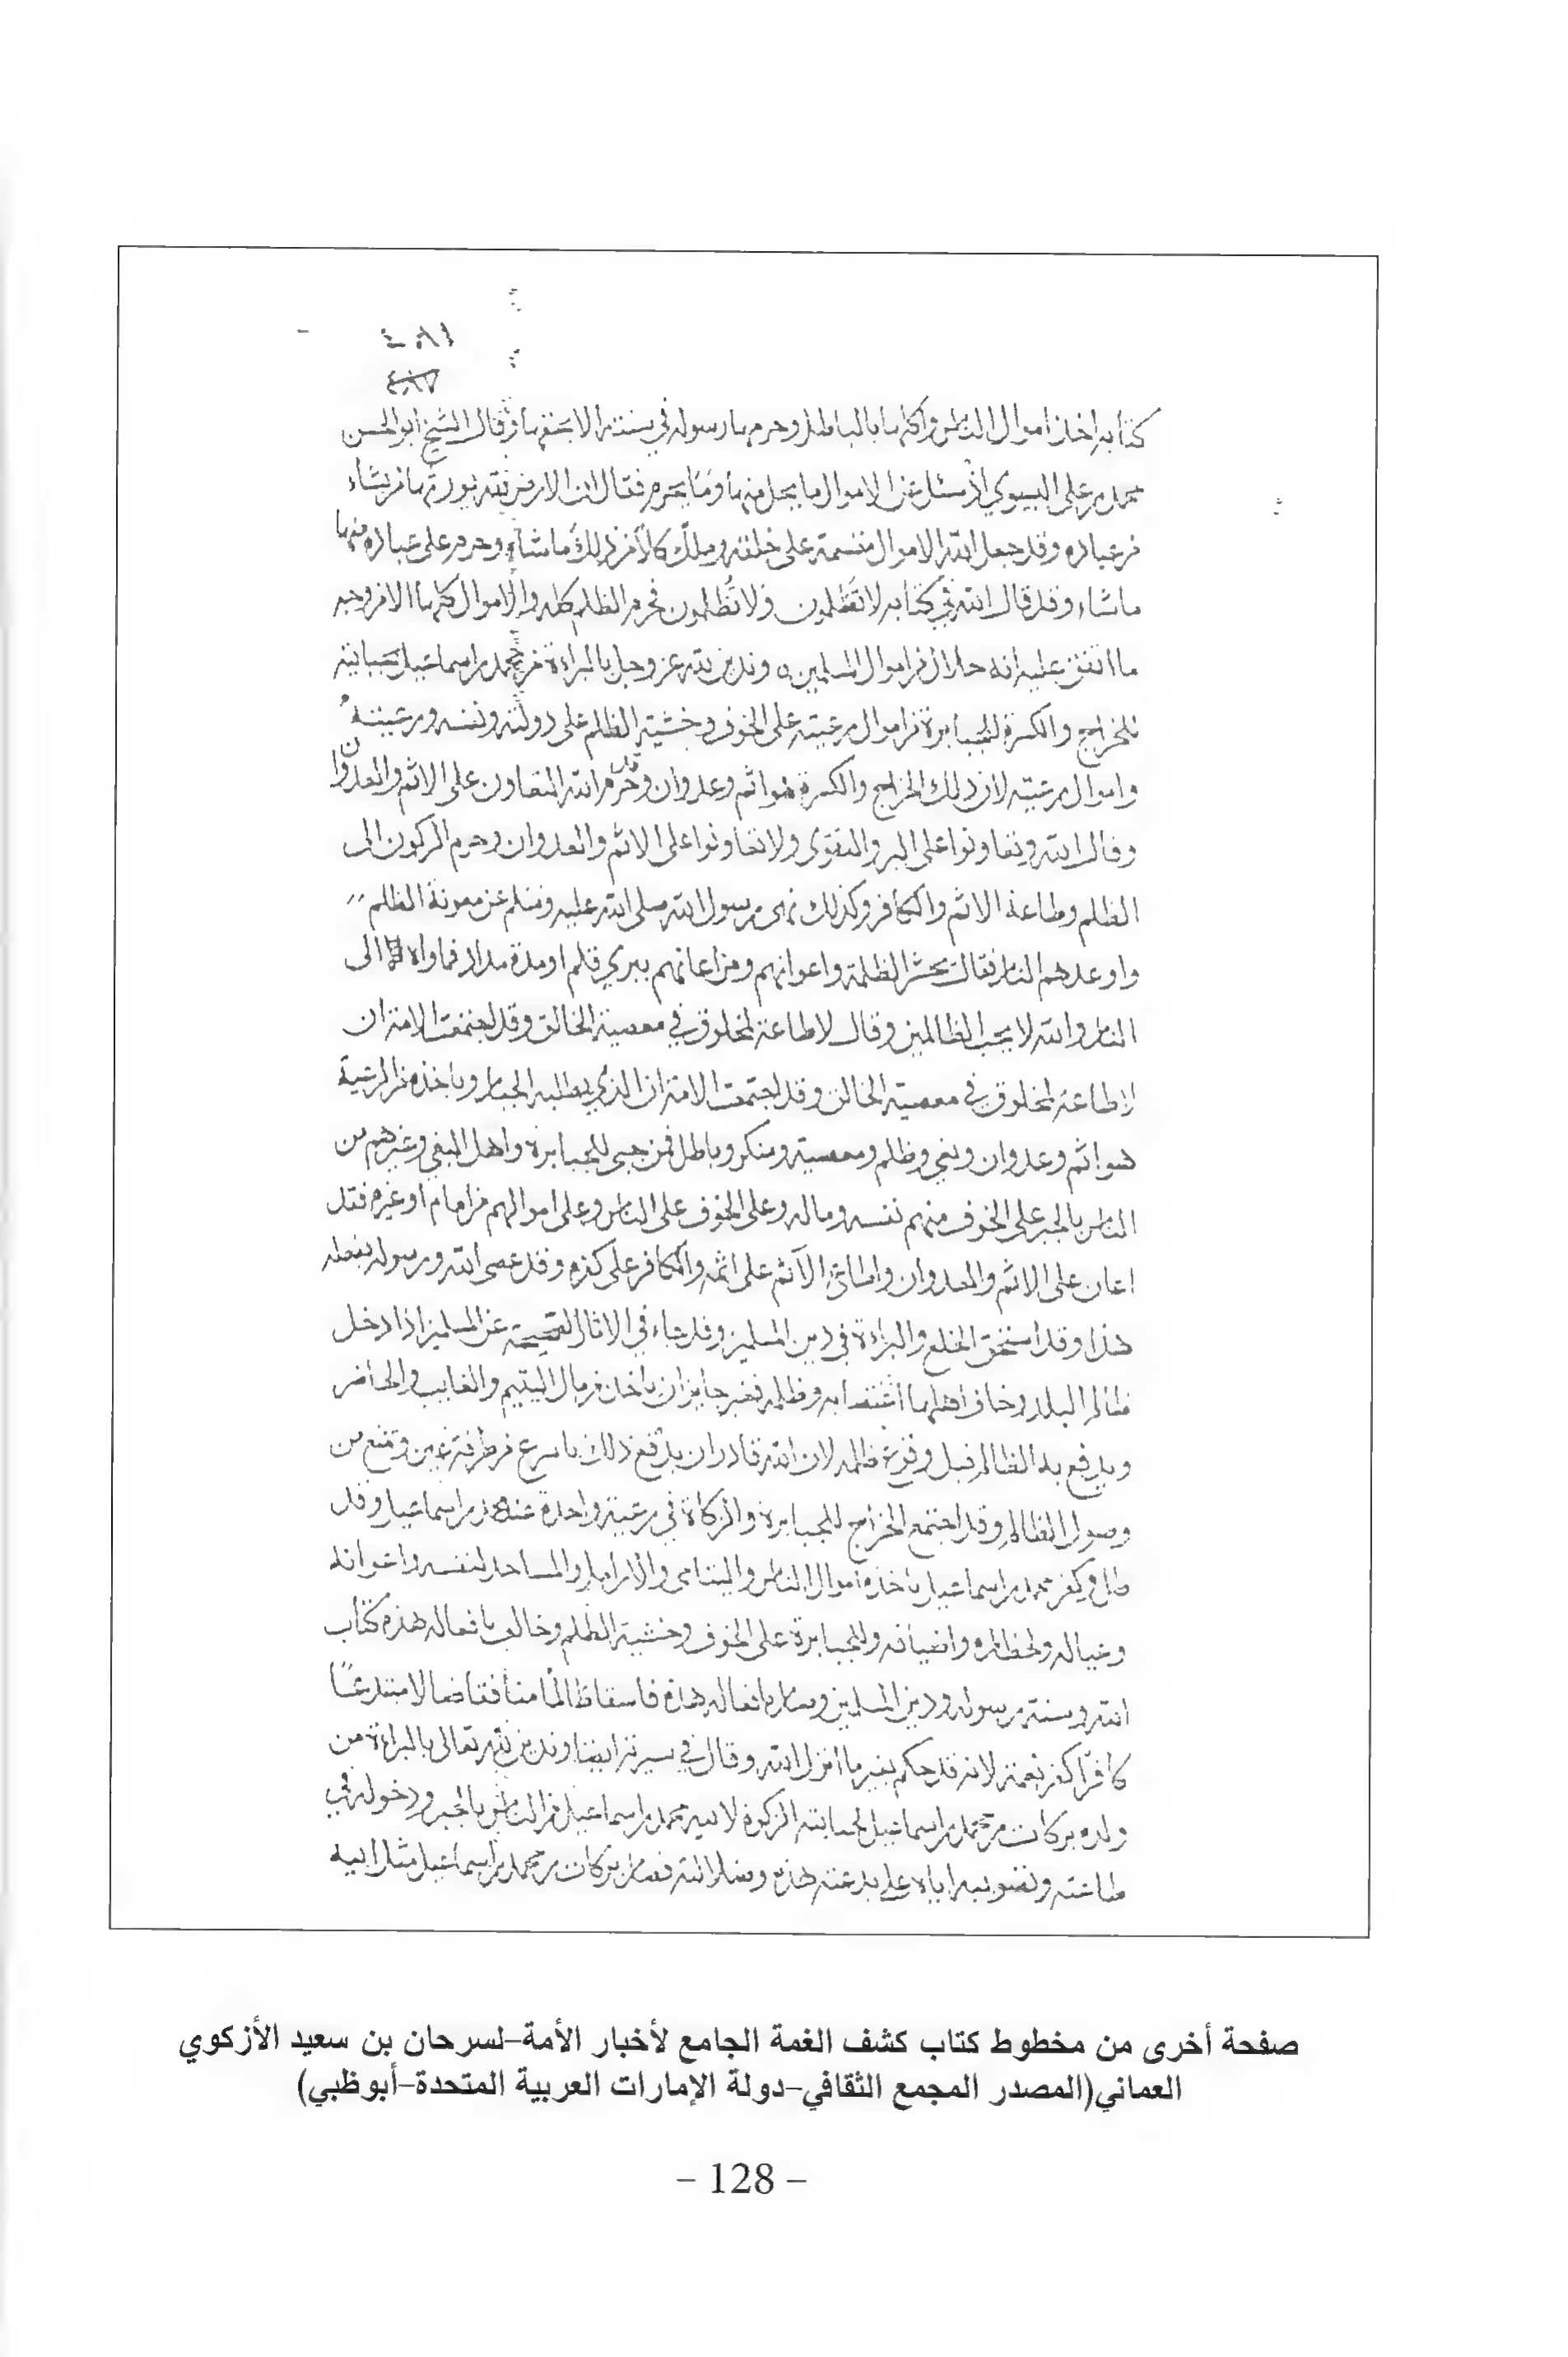 كتابه اخذ اموال الناس واكلها بالباطل وحرمها رسوله في سنته الا بحقها وقال الشيخ ابو الحسن
محمد بن علي البسيوي اذ سئل عن الاموال ما يحل منها وما يحرم فقال ان الارض لله يورثها من يشاء
من عباده وقد جعل الله الاموال منقسمة على خلقه وملك كلا من ذلك ما شاء وحرم على عباده منها
ما شاء وقد قال الله في كتابه لا تَظلمون ولا تُظلمون فحرم الظلم كله والاموال كلها الا من وجه
ما اتفق عليه انه حلال من اموال المسلمين وندين لله عز وجل بالبراءة من محمد بن اسماعيل بجبايته
الخراج والكسرة للجبابرة من اموال رعيته على الخوف وخشية الظلم على دولته ونفسه ورعيته
واموال رعيته لان ذلك الخراج والكسرة هو اثم وعدوان وقد حرم الله التعاون على الاثم والعدوان
وقال الله وتعاونوا على البر والتقوى ولا تعاونوا على الاثم والعدوان وحرم الركون الى
الظلم وطاعة الاثم والكافر وكذلك نهى رسول الله صلى الله عليه وسلم عن معونة الظلم
واوعدهم النار فقال يحشر الظلمة واعوانهم ومن اعانهم ببري قلم او مدة مداد فماواه الى
النار والله لا يحب الظالمين وقال لا طاعة لمخلوق في معصية الخالق وقد اجتمعت الامة ان
لا طاعة لمخلوق في معصية الخالق وقد اجتمعت الامة ان الذي يطلبه الجبار وياخذه من الرعية
هو اثم وعدوان وبغي وظلم ومعصية ومنكر وباطل فمن جبى للجبابرة واهل البغي وغيرهم من
الناس بالجبر على الخوف منهم نفسه وماله وعلى الخوف على الناس وعلى اموالهم من امام او غيره فقد
اعان على الاثم والعدوان واطاع الآثم على اثمه والكافر على كفره وقد عصى الله ورسوله بفعله
هذا وقد استحق الخلع والبراءة في دين المسلمين وقد جاء في الاثار الصحيحة عن المسلمين اذا دخل
ظالم البلد وخاف اهلها اغتصابه وظلمه فغير جايز ان ياخذ من مال اليتيم والغايب والحاضر
ويدفع به الظالم قبل وقوع ظلمه لان الله قادر ان يدفع ذلك باسرع من طرفة عين ويمنع من
وصول الظالم وقد اجتمع الخراج للجبابرة والزكاة في رعية واحدة عند محمد بن اسماعيل وقد
محمد بن اسماعيل ياخذه اموال الناس واليتامى والارامل والمساجد لنفسه واعوانه
وعياله واضيافه وللجبابرة على الخوف وخشية الظلم وخالف بافعاله هذه كتاب
الله وسنة رسوله ودين المسلمين وصار بافعاله هذه فاسقا ظالما منافقا ضالا مبتدعا
كافرا كفر نعمة لانه قد حكم بغير ما انزل الله وقال في سيرته ايضا وندين لله تعالى بالبراءة من
ولده بركات بن محمد بن اسماعيل لجبايته الزكوة لابيه محمد بن اسماعيل من الناس بالجبر ودخوله في
طاعته وتصويبه اياه على بدعته هذه وضلالته فصار بركات بن محمد بن اسماعيل مثل ابيه
صفحة أخرى من مخطوط كتاب كشف الغمة الجامع لأخبار الأمة–لسرحان بن سعيد الأزكوي
العماني(المصدر المجمع الثقافي–دولة الإمارات العربية المتحدة–أبوظبي)
– 128 –